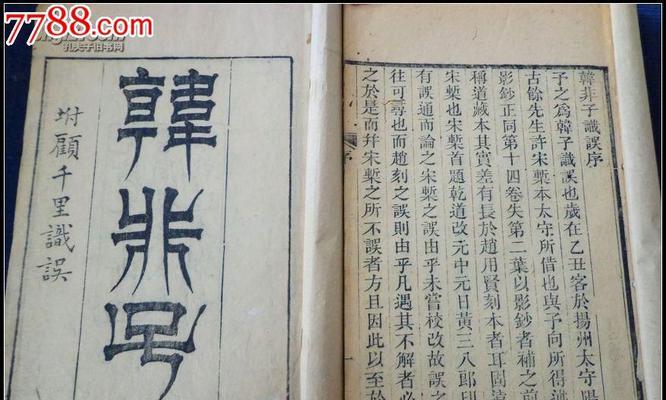 7788.com
孔夫子旧书网
韓非子
坿顧千里識誤
韓非子識誤序
予之爲韓子識誤也歲在乙丑客於揚州太守陽
古餘先生許宋槧本太守所借也與予向所得述
影鈔正同第十四卷失第二葉以影鈔者補之前
稱道藏本其實差有長於趙用賢刻本者耳固
宋槧也宋槧首題乾道改元中元日黃三八郎印
有誤通而論之宋槧之誤由乎未嘗校改故誤之
往可尋也而趙刻之誤則由乎凡遇其不解者
之於是而幷宋槧之所不誤者方且因此以至於